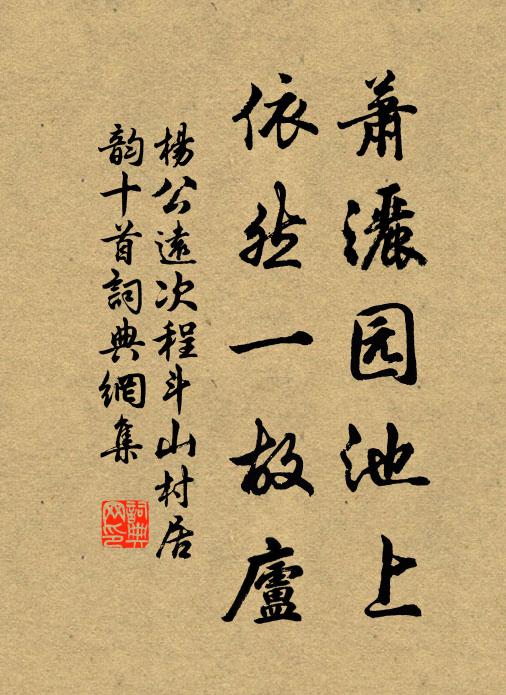 蕭灑园池上
依然一故廬
楊公遠次程斗山村居
韵十首詞典網集
詞典网印